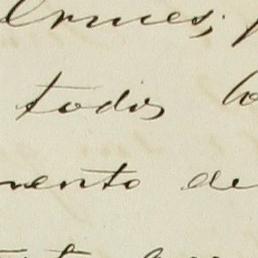 Cruces;
todos lo
mento de